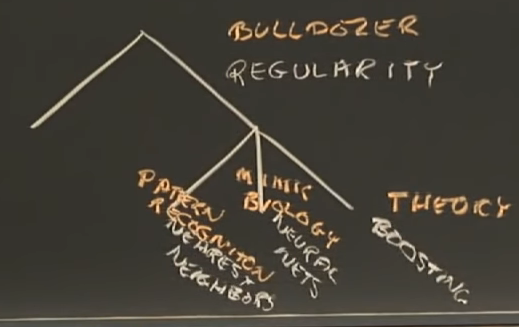 BULLDOZER
REGULARITY
PATERN
RECOGNITON
NEAREST
NEIGHBORS
MIMIC
BIOLOGY
NEURAL
NETS
THEORY
BOOSTING